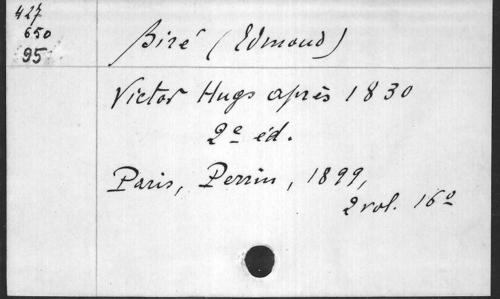 427
650
95
Biré (Edmond)
Victor Hugo après 1830
2e éd.
Paris, Perrin, 1899,
2 vol. 16o